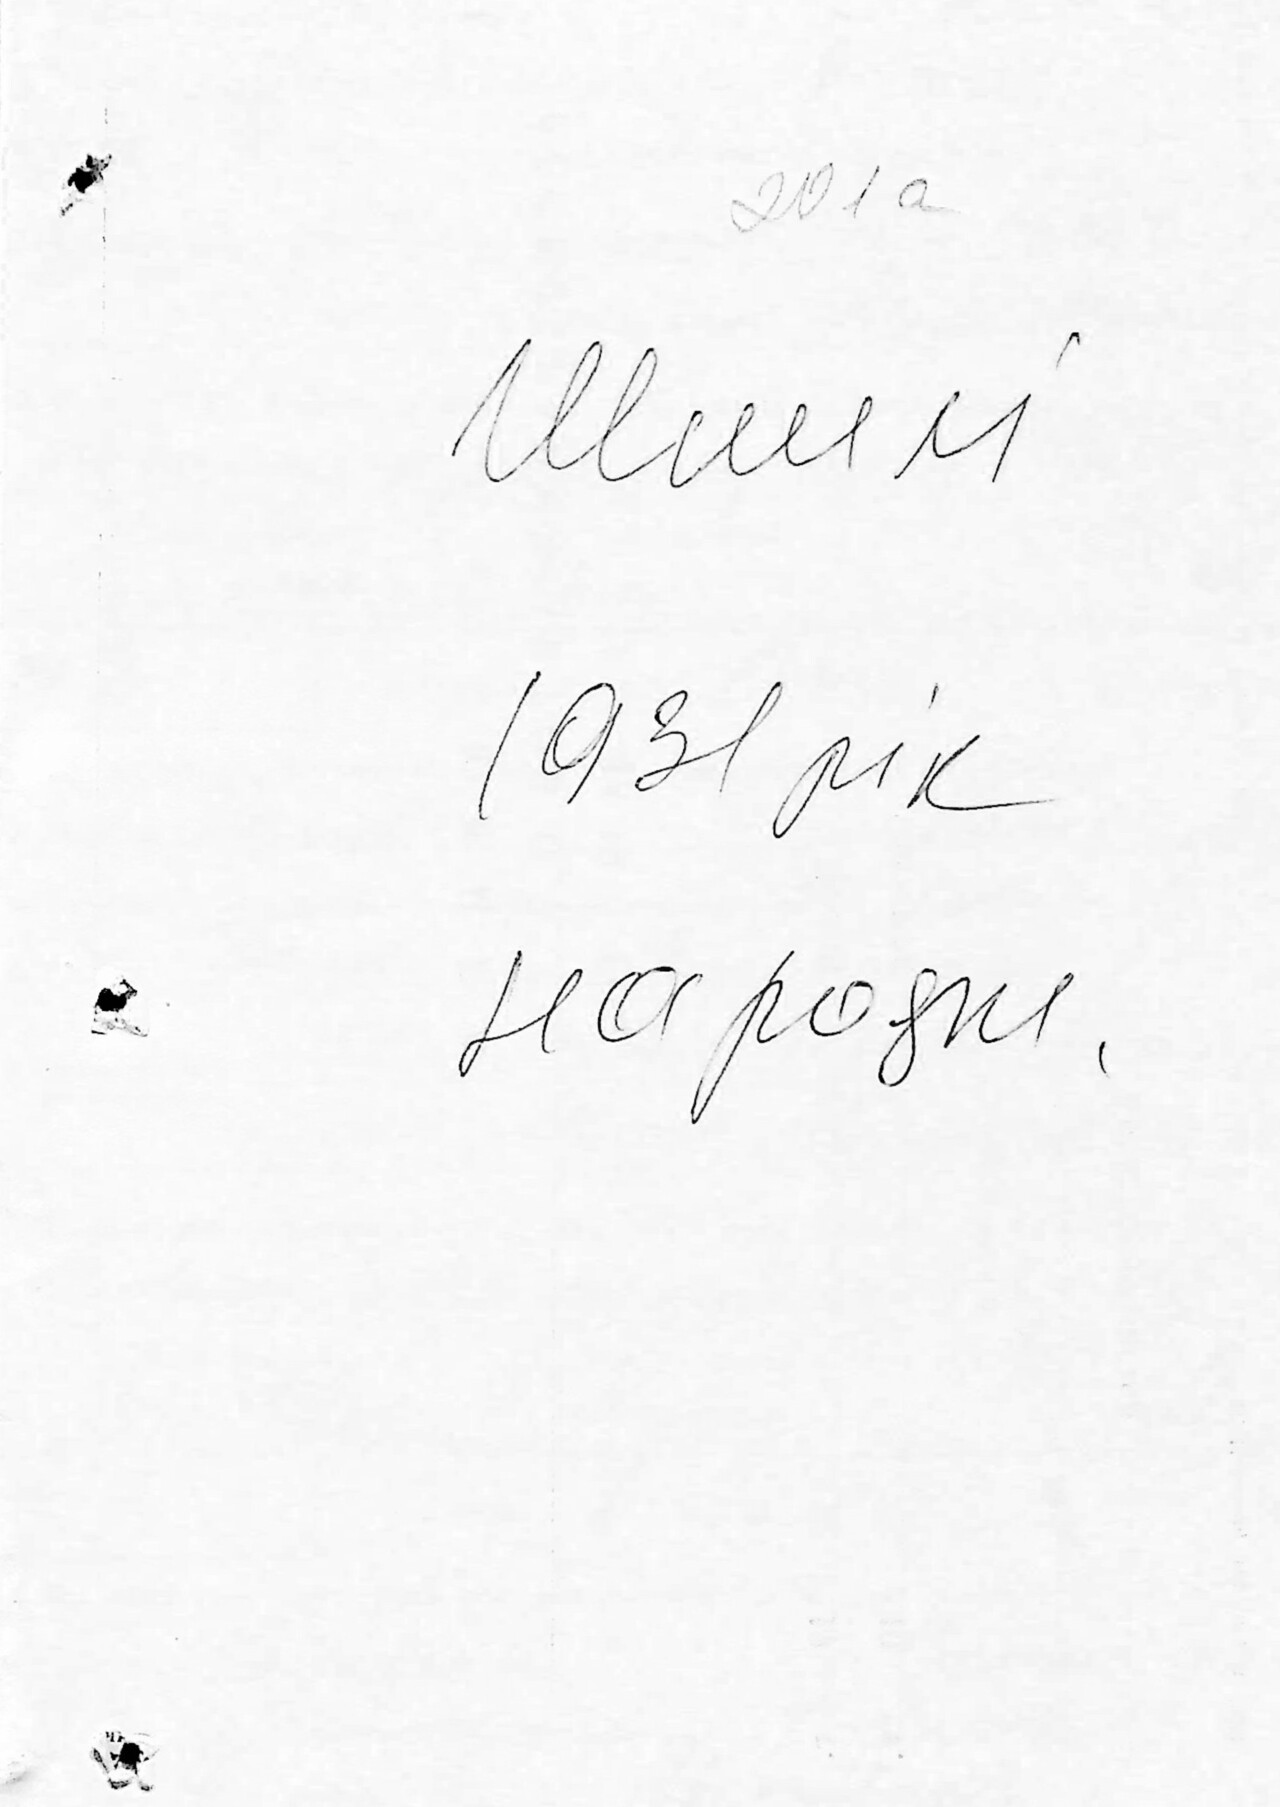 201а
Шишлі
1931 рік
народж.